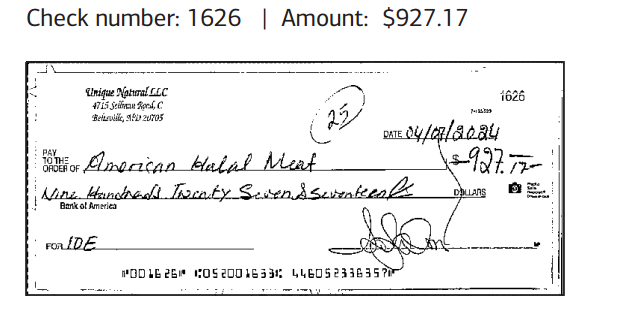 Check number: 1626 | Amount: $927.17
Unique Natural LLC
4715 Sellman Road, C
Beltsville, MD 20705
1626
25
DATE 04/07/2024
PAY
TO THE
ORDER OF American Halal Meat $ 927.17
Nine Handreds Twenty Seven & Seventeen DOLLARS
Bank of America
FOR IDE
⑈001626⑈ ⑆052001633⑆ 446052338357⑈